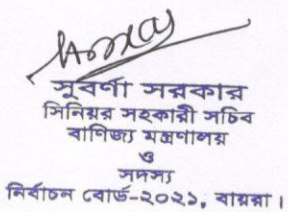 সুবর্ণা সরকার
সিনিয়র সহকারী সচিব
বাণিজ্য মন্ত্রণালয়
ও
সদস্য
নির্বাচন বোর্ড-২০২১, বায়রা।